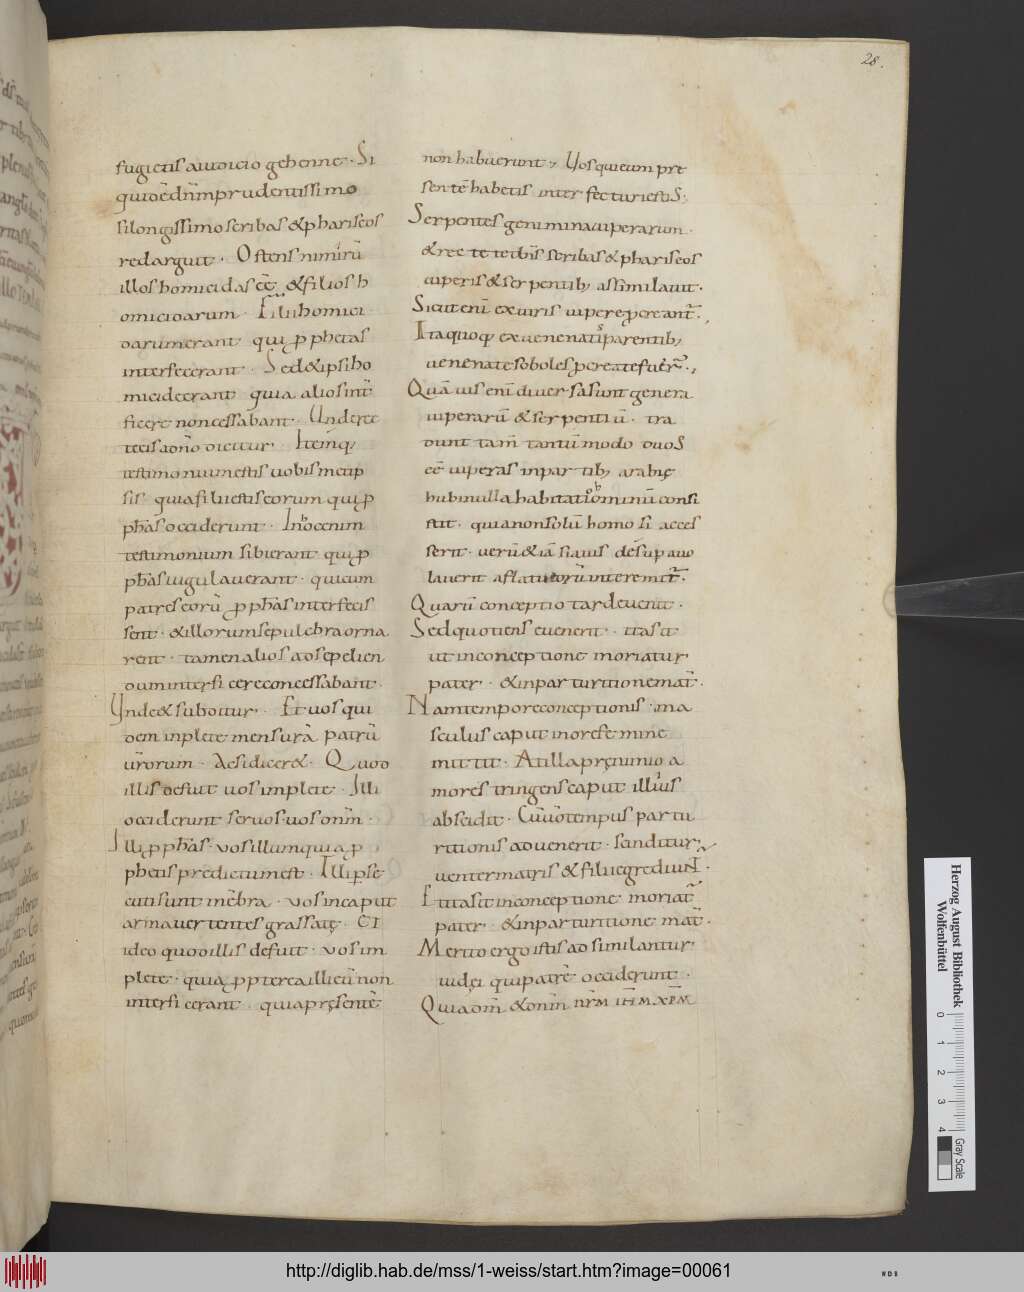 28.
fugietis auidicio gehenne · Si
quidẽ dñm prudentissimo
silongissimo scribas & phariseos
redarguit · Ostens nimirũ
illos homicidas eẽ & filios h
omicidarum · Filii homici
darum erant qui p phetas
interfecerant · Sed & ipsi ho
micide erant quia alios int̃
ficere non cessabant · Unde rec
te cis adño dicitur · Itemq,
testimonium estis uobis metip
sis quia filii estis eorum qui p
phãs occiderunt · Innocenim
testimonium sibi erant qui p
phãs iugulauerant · qui cum
patres eorũ p phãs interfecis
sent · & illorum sepulchra orna
rent · tamen alios adsepelien
dum interficere con cessabant
Unde & subditur · Et uos qui
dem inplete mensurã patrũ
ũrorum · Ac si dicer& · Quod
illis defuit uos implete · Illi
occiderunt seruos uos dñm ·
Illi p phãs · uos illum quia p
phetis predictum est · Illi pse
cuti sunt mẽbra · uos in caput
arma uertentes grassatę · Et
ideo quod illis defuit · uos im
plete · quia p pterea illi cũ non
interficerant quia pręsentẽ
non habuerunt, Uos qui eum pre
sentẽ habetis inter fecturi estis ·
Serpentes genimina uiperarum ·
& rec te te ibĩs scribas & phariseos
uiperis & serpentib, assimilauit ·
Sicut enĩ ex uiris uipere pereant̃ ·,
Itaquoq ex uenenatis parentib,
uenenate soboles pcreate fuer̃ ·,
Quã uis enĩ diuersa sunt genera
uiperarũ & serpentiũ · tra
dunt tam̃ tantũ modo duos
eẽ uiperas inpar tib, arabię
hubi nulla habitatio hominũ consi
stit · quia non solũ homo si acces
serit · uerũ & iã si auis desup auo
lauerit aflatu eorũ interemit̃ ·
Quarũ conceptio tard euenit ·
Sed quotiens euenerit · ita sit
ut in conceptione moriatur
pater · & in par turitione mat̃ ·
Nam tempore conceptionis · ma
sculus caput in ore femine
mittit · At illa prę nimio a
mores tringens caput illius
abscidit · Cũ uõ tempus partu
ritionis aduenerit · scinditur
uenter matris & filii egrediunt̃ ·
Et ita sit in conceptione moriat̃
pater · & in par turitione mat̃ ·
Merito ergo istis adsimilantur
iudęi qui patrẽ occiderunt ·
Quia dm̃ & dnĩn nr̃m ihm̃ xpm̃
Herzog August Bibliothek
Wolfenbüttel
0 1 2 3 4
Gray Scale
http://diglib.hab.de/mss/1-weiss/start.htm?image=00061